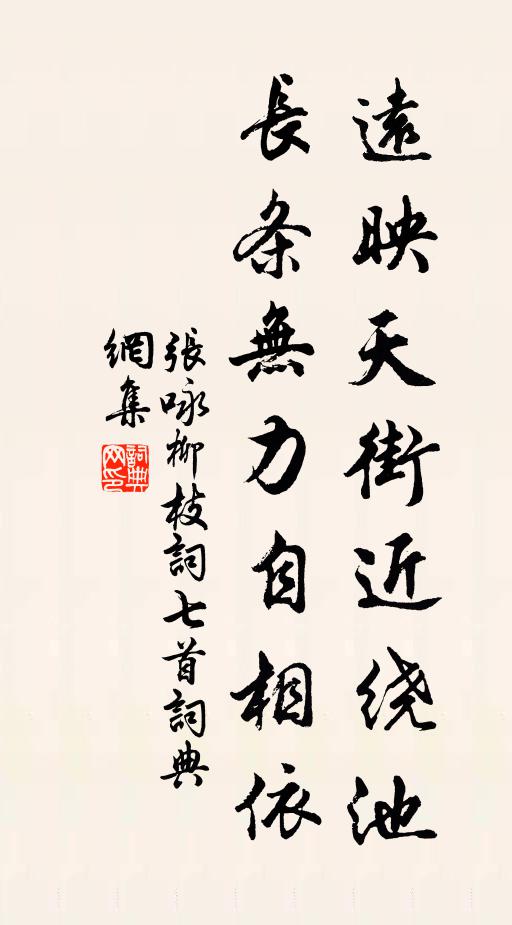 遠映天街近绕池
長条無力自相依
張咏柳枝詞七首詞典
網集
詞典
网印